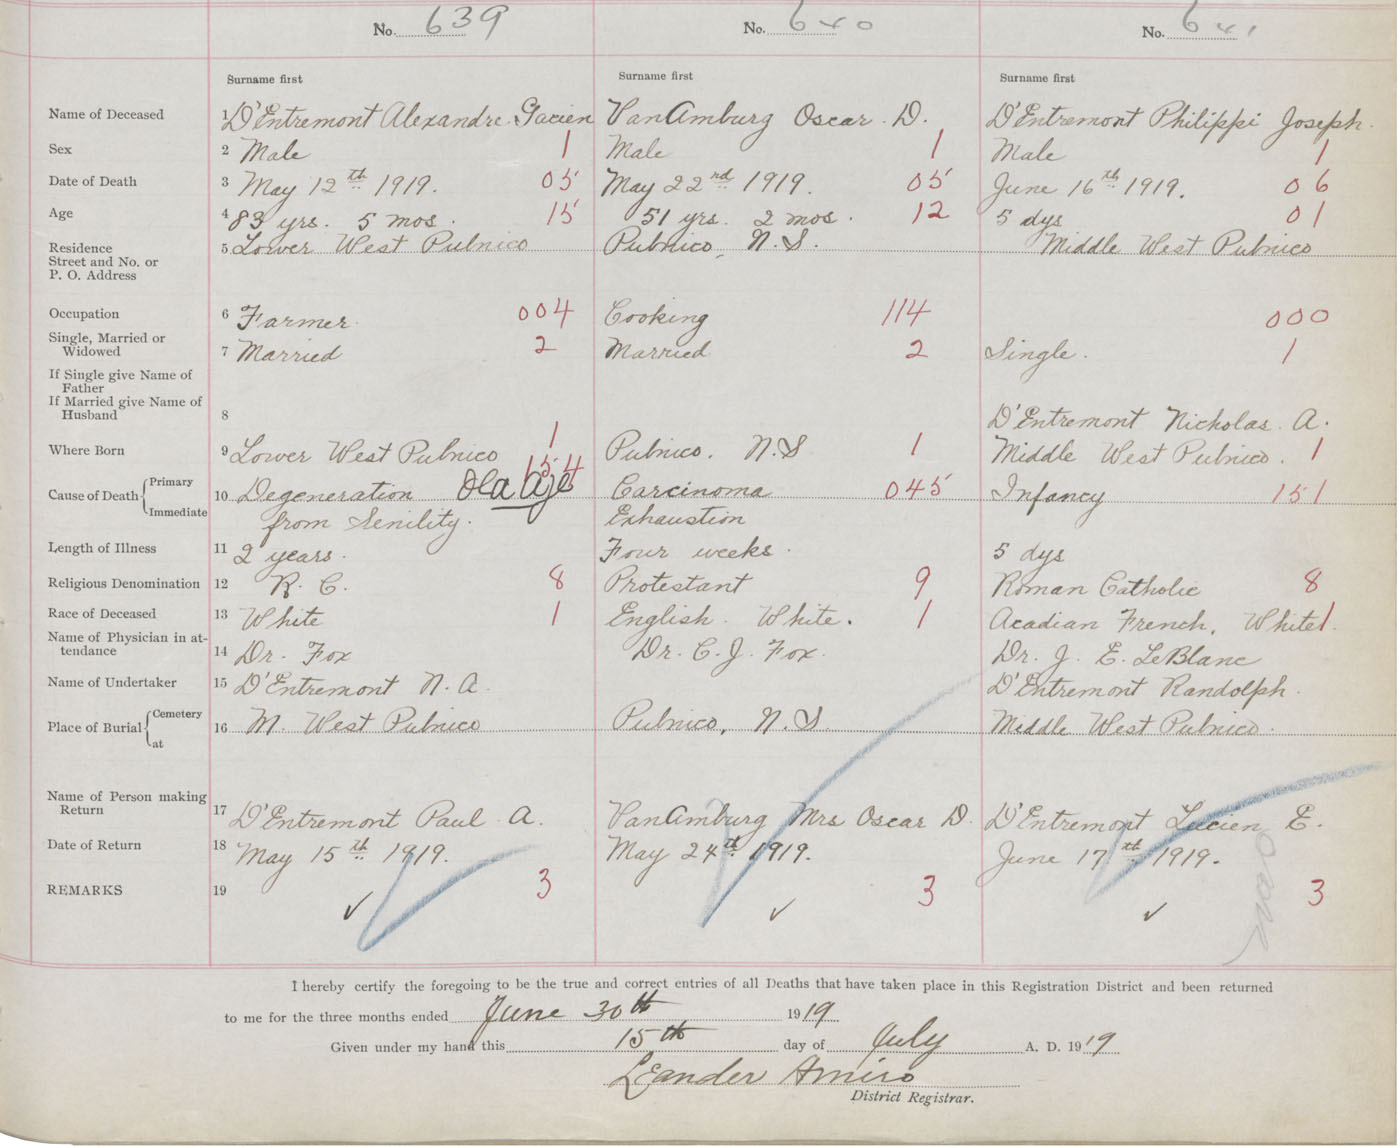 No. 639 No. 640 No. 641
Surname first Surname first Surname first
Name of Deceased 1 D'Entremont Alexandre Gacien VanAmburg Oscar D. D'Entremont Philippi Joseph.
Sex 2 Male 1 Male 1 Male 1
Date of Death 3 May 12th 1919. 05 May 22nd 1919. 05 June 16th 1919. 06
Age 4 83 yrs. 5 mos. 15 51 yrs. 2 mos. 12 5 dys 01
Residence 5 Lower West Pubnico Pubnico, N.S. Middle West Pubnico
Street and No. or
P. O. Address
Occupation 6 Farmer 004 Cooking 114 000
Single, Married or
Widowed 7 Married 2 Married 2 Single. 1
If Single give Name of
Father
If Married give Name of
Husband 8 D'Entremont Nicholas. A.
Where Born 9 Lower West Pubnico 1 Pubnico. N.S 1 Middle West Pubnico. 1
154
Cause of Death { Primary 10 Degeneration Old Age Carcinoma 045 Infancy 151
Immediate from Senility. Exhaustion
Length of Illness 11 2 years. Four weeks. 5 dys
Religious Denomination 12 R. C. 8 Protestant 9 Roman Catholic 8
Race of Deceased 13 White 1 English. White. 1 Acadian French, White 1
Name of Physician in at-
tendance 14 Dr. Fox Dr. C. J. Fox. Dr. J. E. LeBlanc
Name of Undertaker 15 D'Entremont N. A. D'Entremont Randolph.
Place of Burial { Cemetery
at 16 M. West Pubnico Pubnico, N.S. Middle West Pubnico.
Name of Person making
Return 17 D'Entremont Paul A. VanAmburg Mrs Oscar D. D'Entremont Lucien E.
Date of Return 18 May 15th 1919. May 24th 1919. June 17th 1919.
REMARKS 19 3 3 3
✓ ✓ ✓
I hereby certify the foregoing to be the true and correct entries of all Deaths that have taken place in this Registration District and been returned
to me for the three months ended June 30th 1919
Given under my hand this 15th day of July A. D. 1919
Leander Amiro
District Registrar.